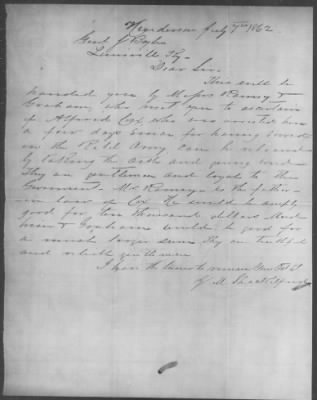 Henderson July 7th 1862
Genl J Boyle
Louisville Ky.
Dear Sir.
This will be
handed you by Messrs Ramey &
Graham, who visit you to ascertain
if Alfred Cox, who was arrested here
a few days since for having served
in the Rebel Army can be released
by taking the oath and giving bond
They are gentlemen and loyal to the
Government. Mr. Ramey is the father
in law of Cox He would be amply
good for ten thousand dollars and
Graham would be good for
a much larger sum They are truthful
and reliable gentlemen
I have the honor to remain Your Obt St